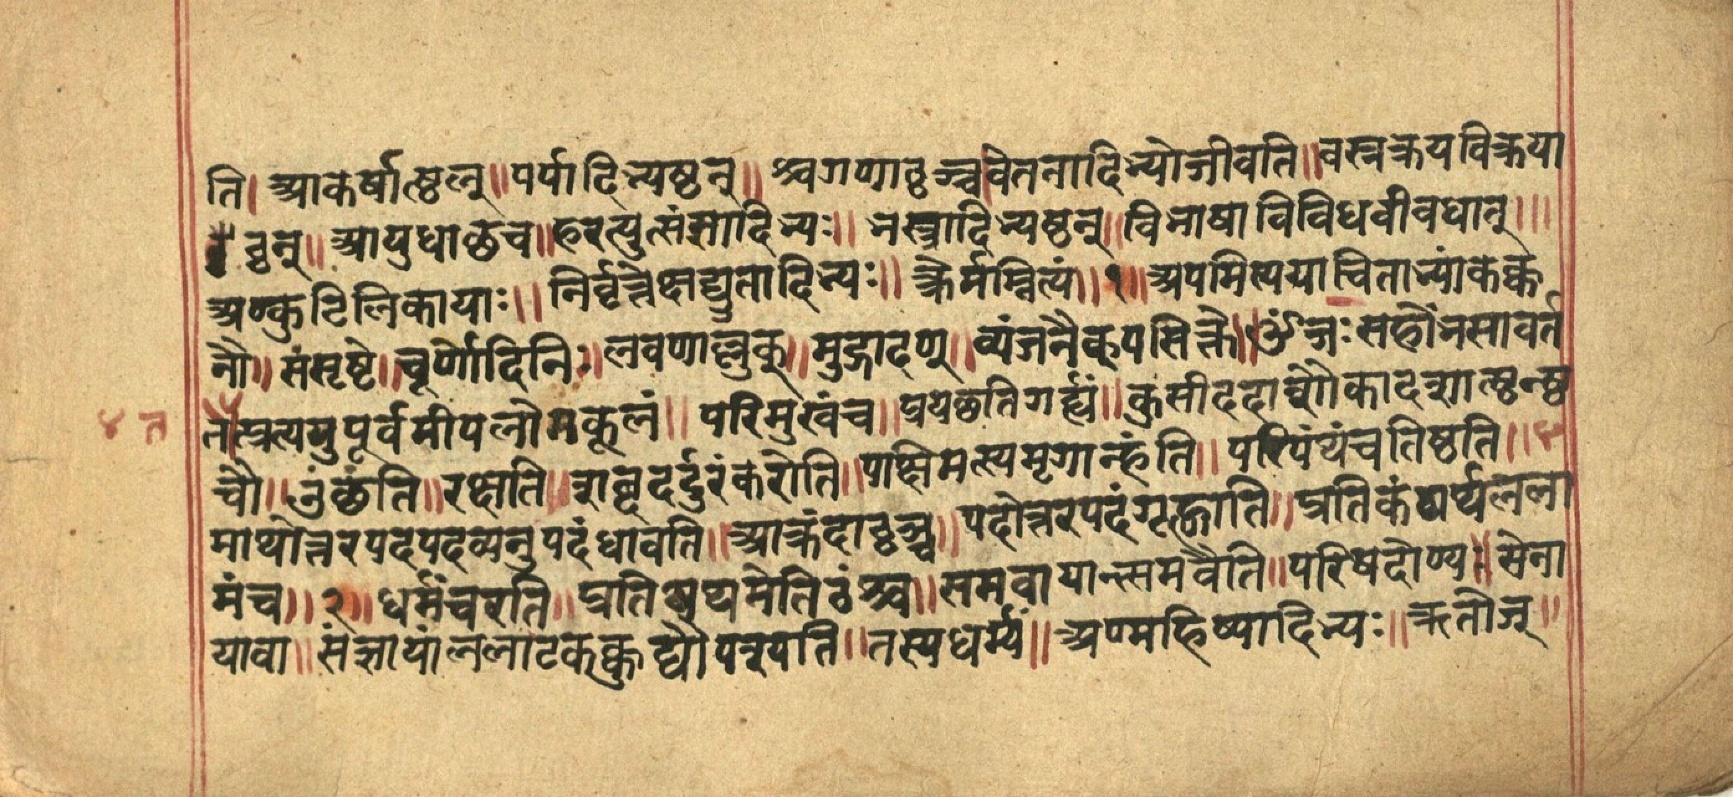 ति। आकर्षात्ष्ठल्॥ पर्पादिभ्यष्ठन्॥ श्वगणाठ्ठञ्च वेतनादिभ्योजीवति॥ वस्नक्रयविक्रया
ठ्ठन्॥ आयुधाछच॥ हरत्युत्संगादिभ्यः॥ भस्त्रादिभ्यष्ठन्॥ विभाषाविविधवीवधात्॥
अण्कुटिलिकायाः॥ निर्वृत्तेक्षद्युतादिभ्यः॥ क्त्रेर्मम्नित्यं॥१॥ अपमित्ययाचिताभ्यांकक्क
नौ॥ संसृष्टे॥ चूर्णादिनिः॥ लवणाल्लुक्॥ मुद्गादण्॥ व्यंजनैरुपसिक्ते॥ ओजःसहोंभसावर्त
तेतत्प्रत्यनुपूर्वमीपलोमकूलं॥ परिमुखंच॥ प्रयछतिगर्ह्यं॥ कुसीददशैकादशात्ष्ठन्ष्ठ
चौ॥ उंछति॥ रक्षति॥ शब्ददर्दुरंकरोति॥ पक्षिमत्स्यमृगान्हंति॥ परिपंथंचतिष्ठति॥
माथोत्तरपदपदव्यनुपदंधावति॥ आक्रंदाठ्ठञ्च॥ पदोत्तरपदंगृह्णाति॥ प्रतिकंठार्थलला
मंच॥२॥ धर्मंचरति॥ प्रतिपथमेतिठंश्च॥ समवायान्समवैति॥ परिषदोण्यः॥ सेना
यावा॥ संज्ञायांललाटकक्कुट्यौपश्यति॥ तस्यधर्म्यं॥ अण्महिष्यादिभ्यः॥ ऋतोञ्॥
४ त